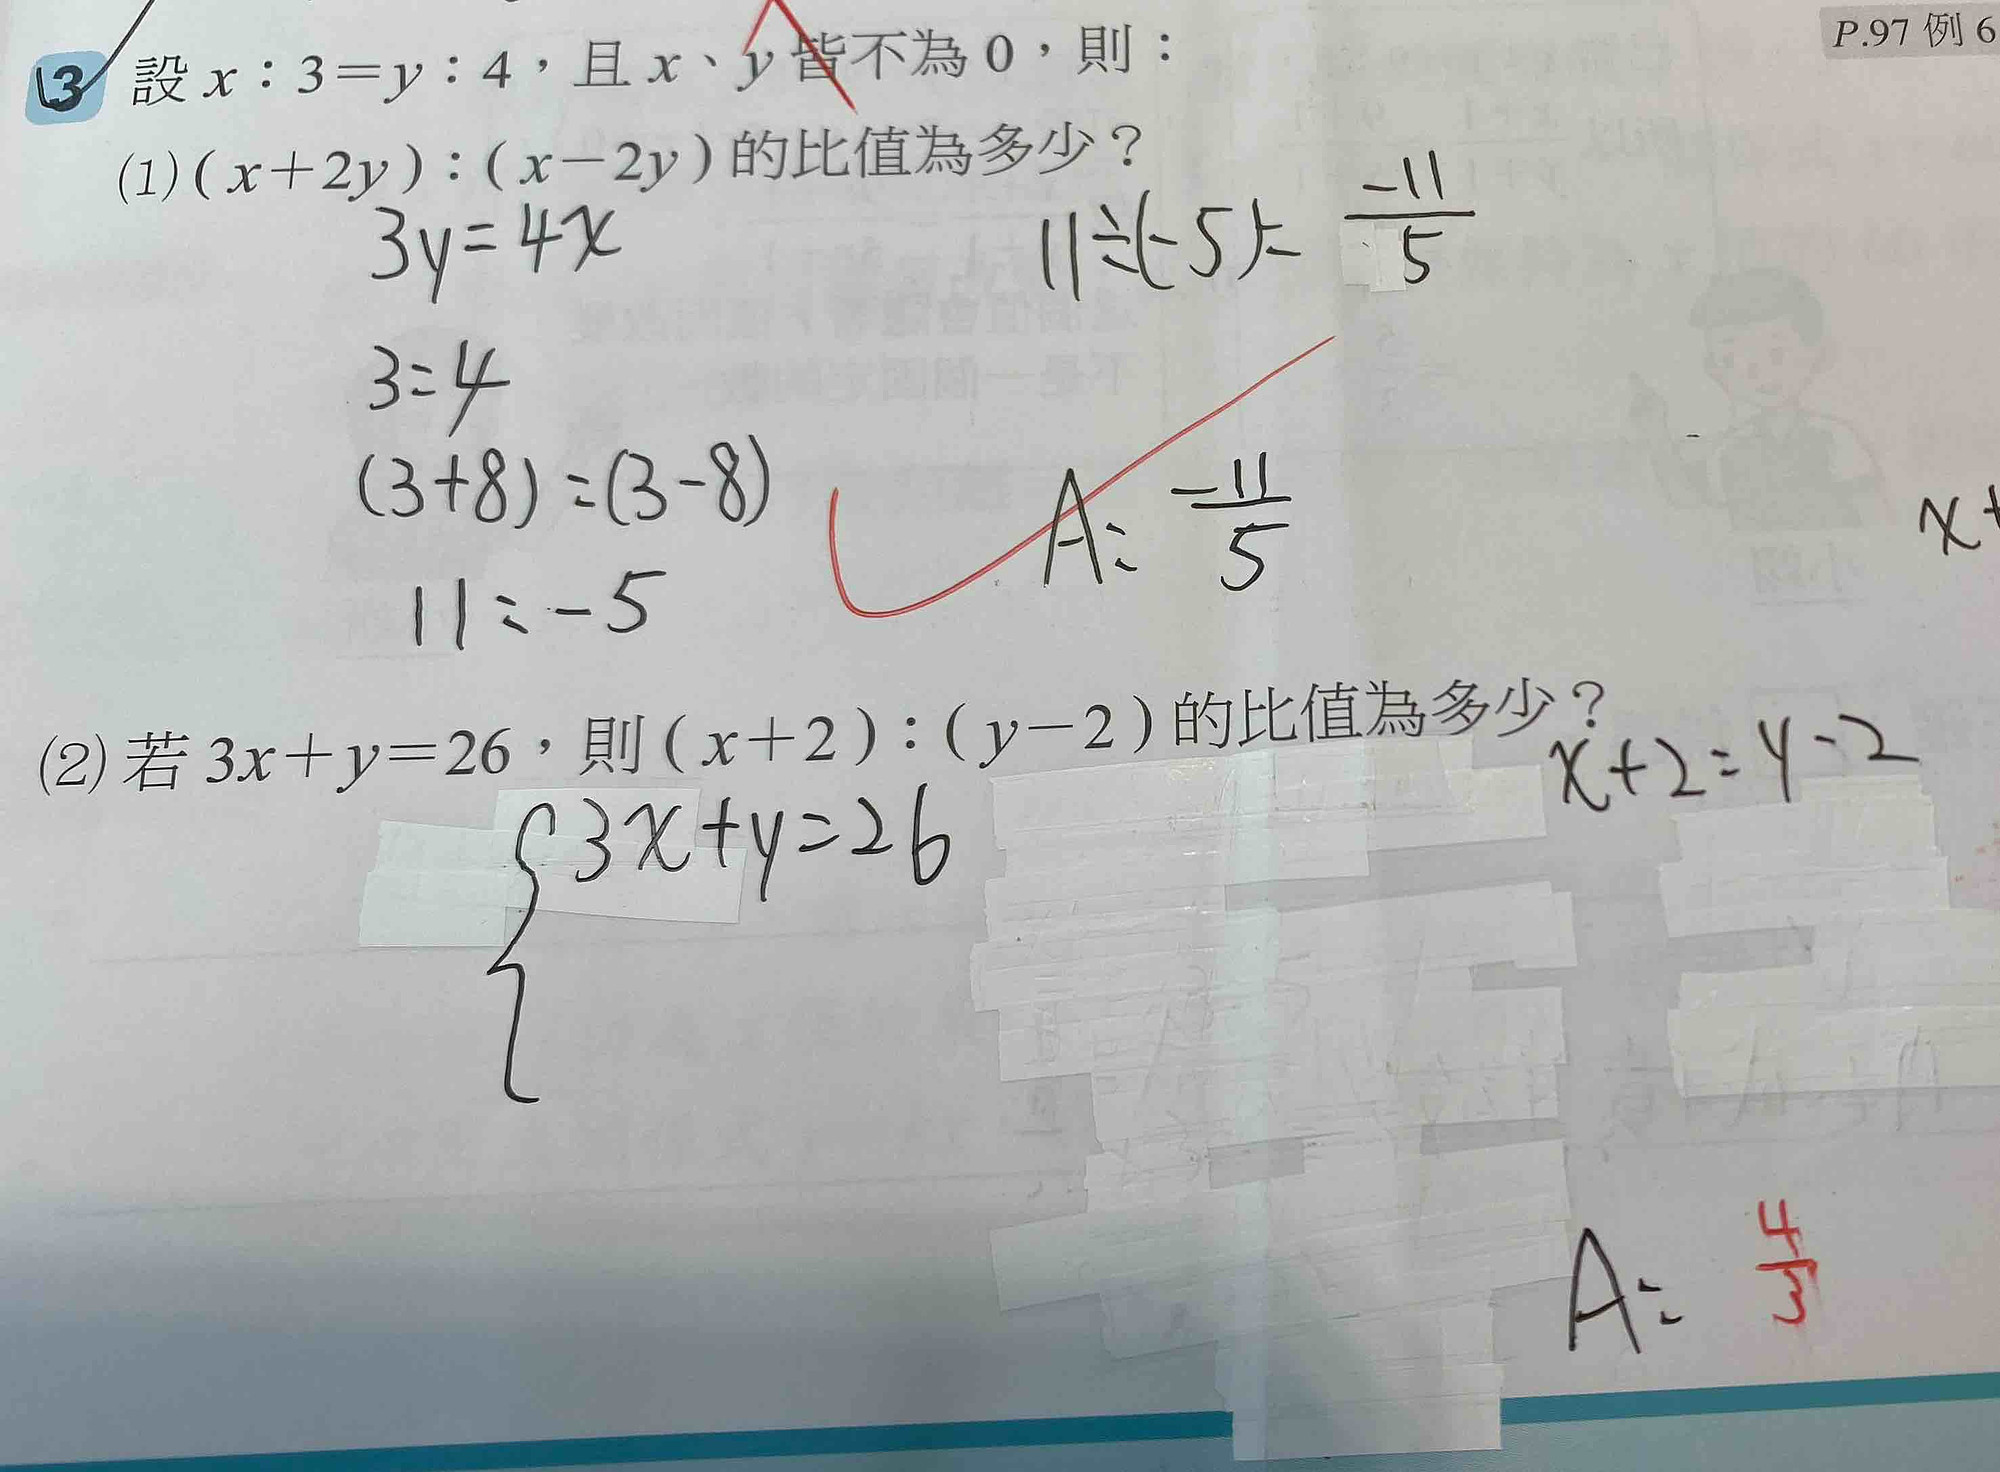 P.97 例 6
3 設 x：3＝y：4，且 x、y 皆不為 0，則：
(1)(x＋2y)：(x－2y)的比值為多少？
3y=4x
11÷(-5)= -11/5
3:4
(3+8):(3-8)
A: -11/5
x+
11:-5
(2) 若 3x＋y＝26，則(x＋2)：(y－2)的比值為多少？
x+2:y-2
{3x+y=26
A: 4/3